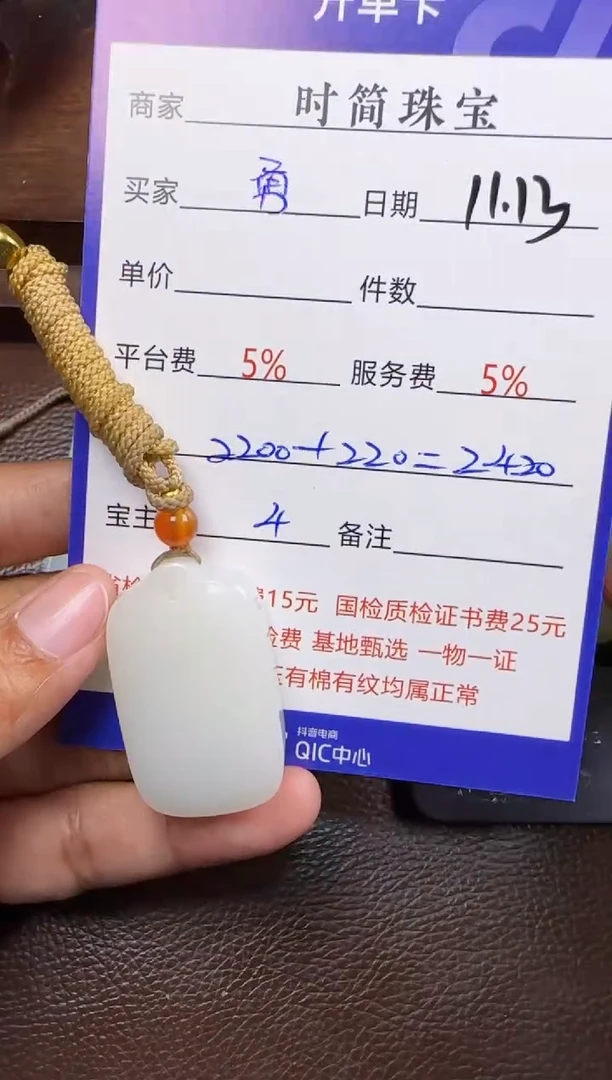 开单卡
商家 时简珠宝
买家 勇 日期 11.13
单价 件数
平台费 5% 服务费 5%
2200+220=2420
宝主 4 备注
15元 国检质检证书费25元
检费 基地甄选 一物一证
有棉有纹均属正常
抖音电商
QIC中心